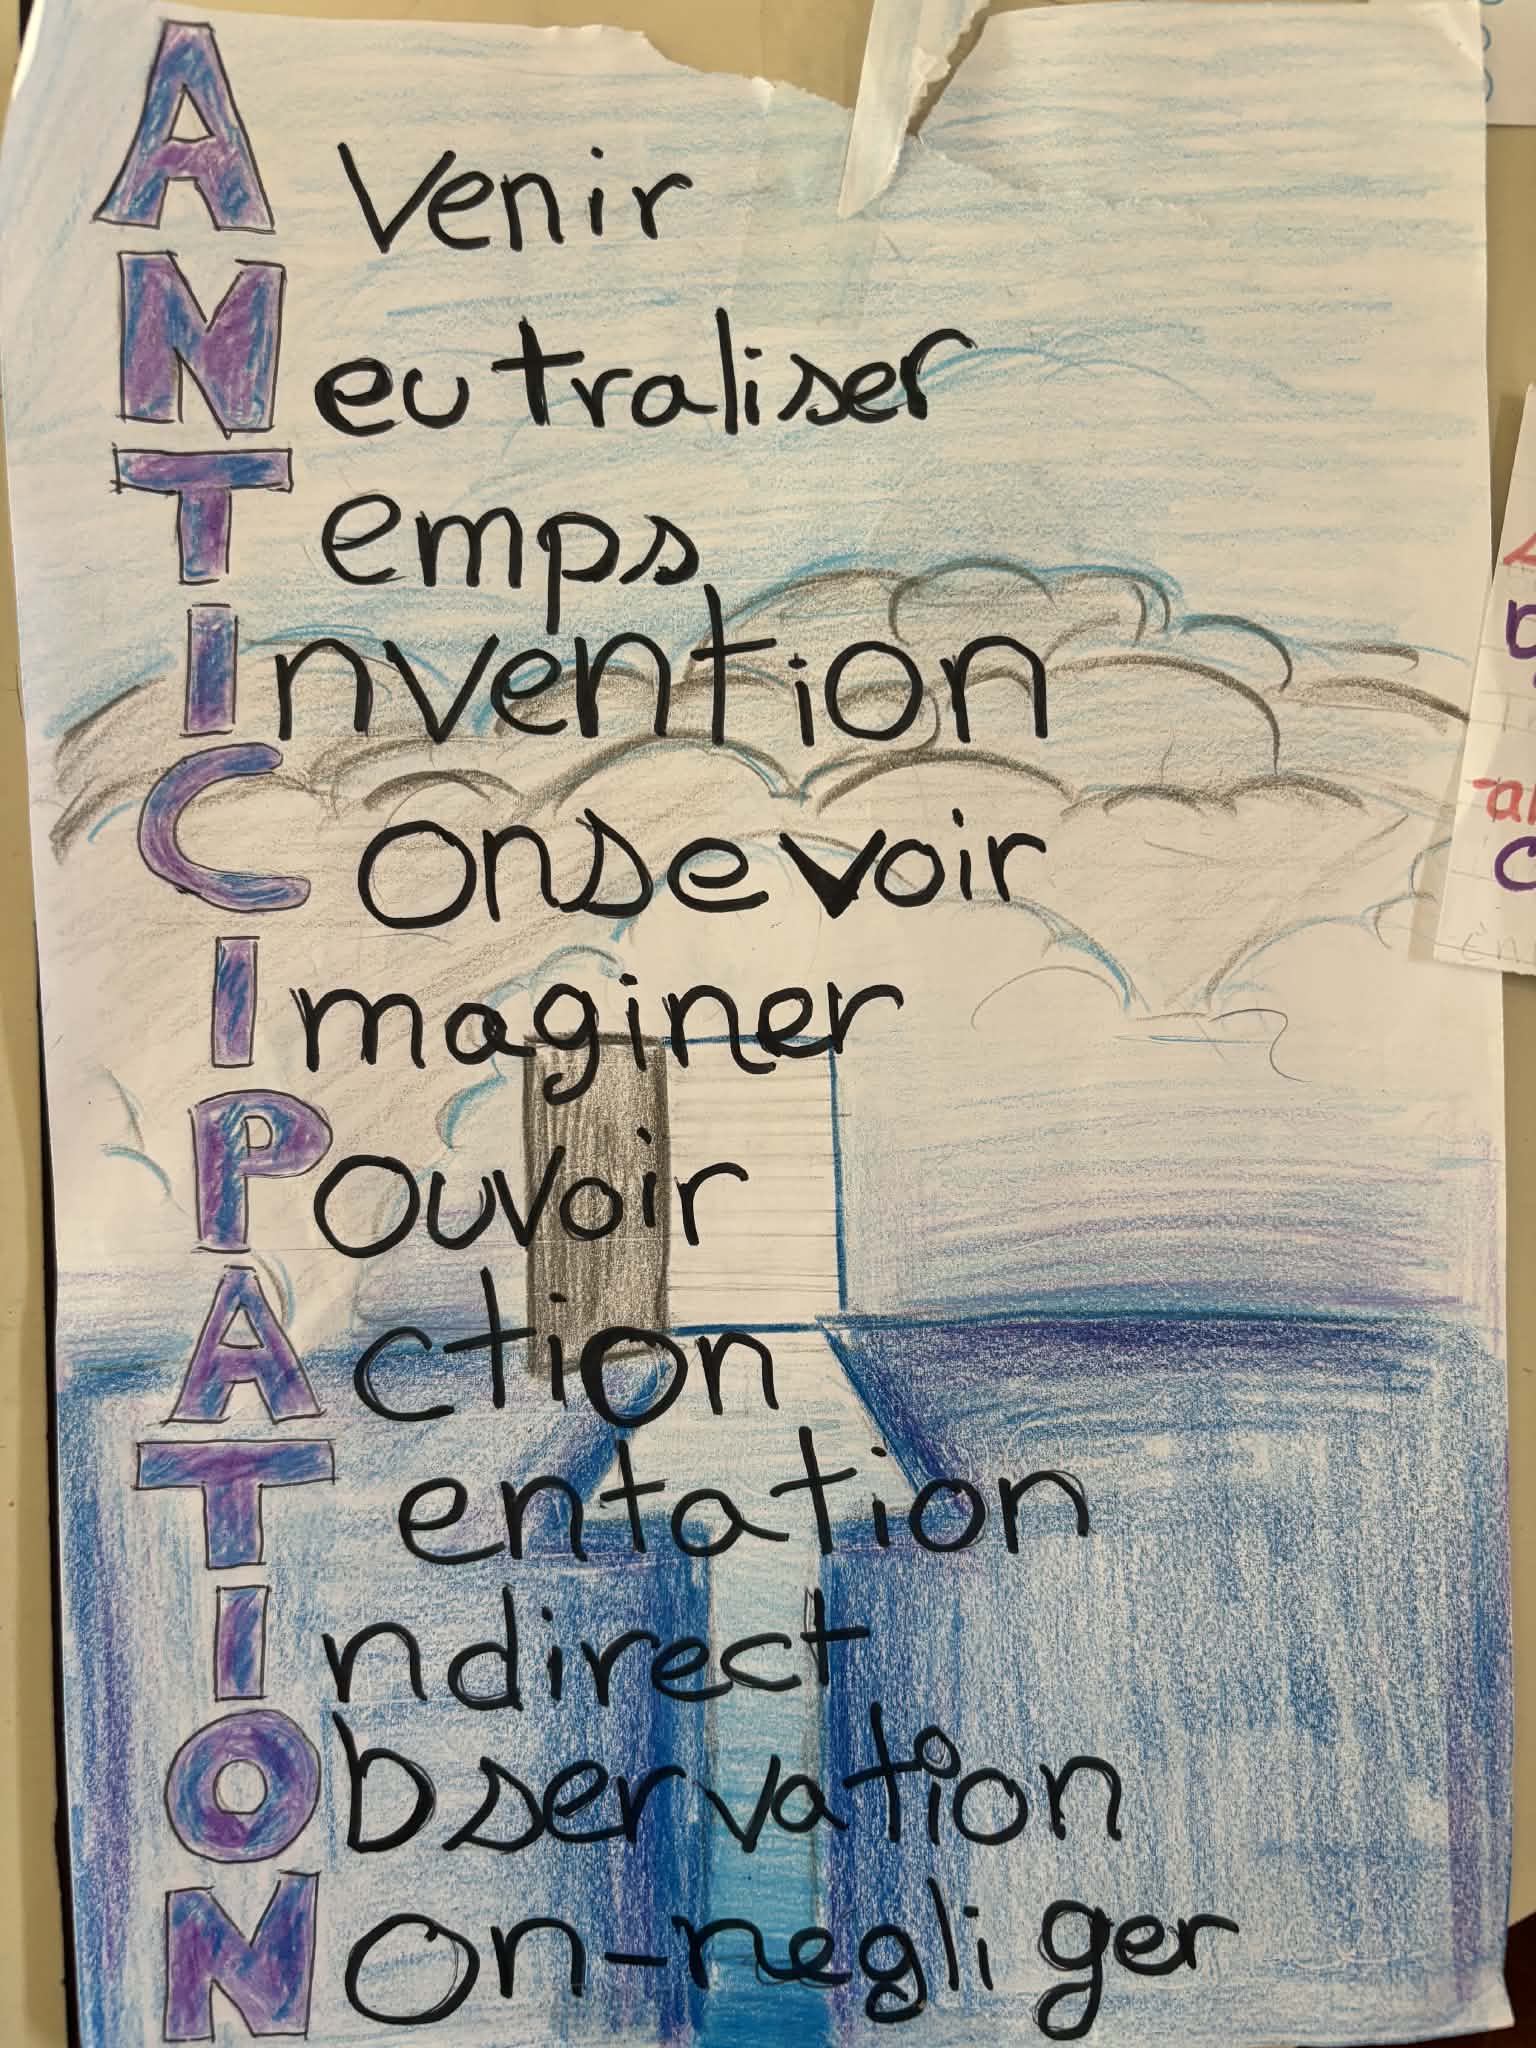 Avenir
Neutraliser
Temps
Invention
Consevoir
Imaginer
Pouvoir
Action
Tentation
Indirect
Observation
Non-negliger